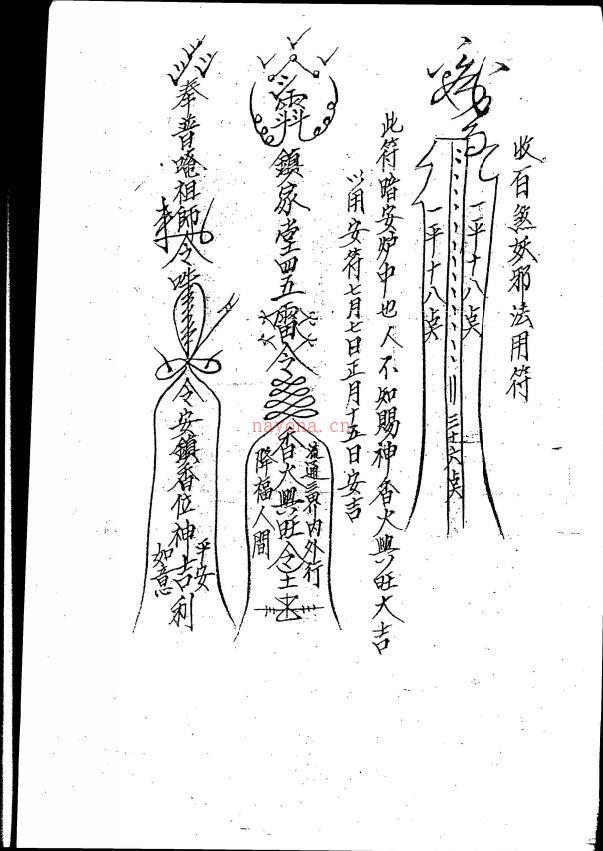 收百煞妖邪法用符
一平十八点
三十六点
一平十八点
此符暗安炉中也人不知賜神香火興旺大吉
以用安符七月七日正月十五日安吉
鎮家堂四五雷令
流通三界内外行
香火興旺令
降福人間
奉普唵祖師令
令安鎮香位神吉利
平安
如意
nayona.cn